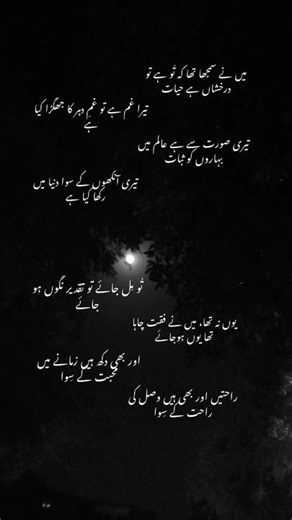 میں نے سمجھا تھا کہ تُو ہے تو
درخشاں ہے حیات
تیرا غم ہے تو غمِ دہر کا جھگڑا کیا
ہے
تیری صورت سے ہے عالم میں
بہاروں کو ثبات
تیری آنکھوں کے سوا دنیا میں
رکھا کیا ہے
تُو مل جائے تو تقدیر نگوں ہو
جائے
یوں نہ تھا، میں نے فقت چاہا
تھا یوں ہوجائے
اور بھی دکھ ہیں زمانے میں
محبت کے سِوا
راحتیں اور بھی ہیں وصل کی
راحت کے سِوا